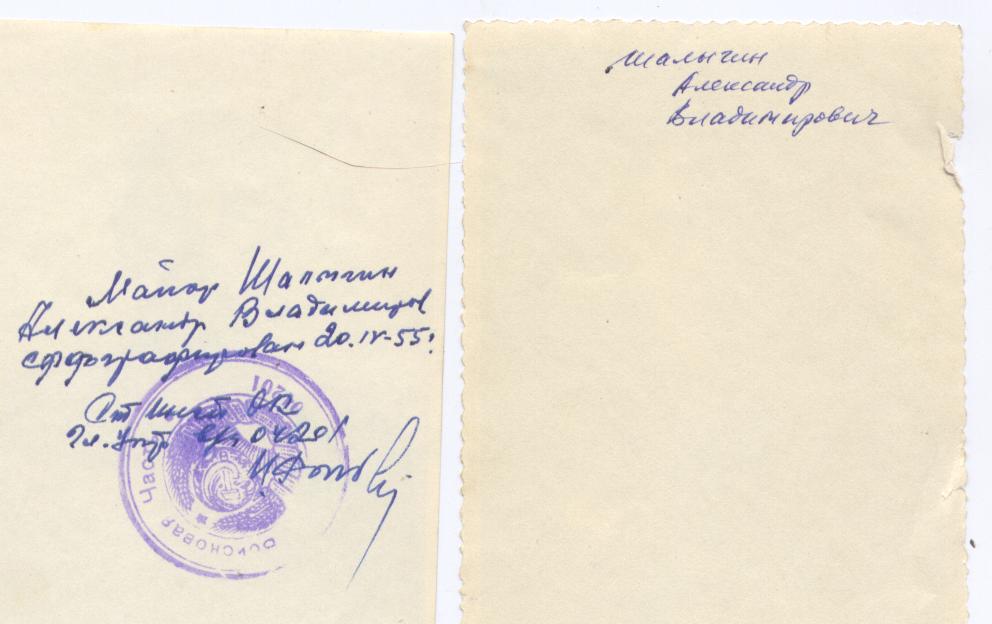 Майор Шалыгин
Александр Владимиров
сффтографирован 20.IV-55г.
Ст
04201
Войсковая Час
Шалыгин
Александр
Владимирович